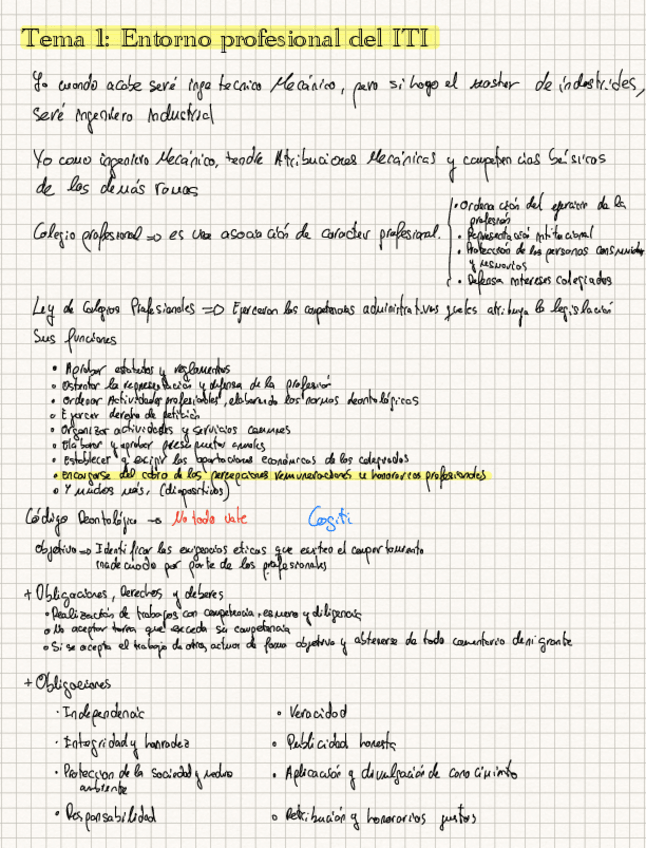 Tema 1: Entorno profesional del ITI
Yo cuando acabe seré inge tecnico Mecánico, pero si hago el master de industriales,
seré Ingeniero Industrial
Yo como ingeniero Mecánico, tendré Atribuciones Mecánicas y competencias básicas
de las demás ramas
Colegio profesional => es una asociación de caracter profesional.
• Ordenación del ejercicio de la
profesión
• Representación institucional
• Protección de las personas consumidoras
y usuarios
• Defensa intereses colegiados
Ley de Colegios Profesionales => Ejerceran las competencias administrativas les atribuya la legislación
Sus funciones
• Aprobar estatutos y reglamentos
• Ostentar la representación y defensa de la profesión
• Ordenar Actividades profesionales, elaborando las normas deontológicas
• Ejercer derecho de petición
• Organizar actividades y servicios comunes
• Elaborar y aprobar presupuestos anuales
• Establecer y exigir las aportaciones económicas de los colegiados
• Encargarse del cobro de las percepciones remuneraciones u honorarios profesionales
• Y muchos más, (diapositivas)
Código Deontológico → No todo vale Cogiti
Objetivo => Identificar las exigencias eticas que eviten el comportamiento
inadecuado por parte de los profesionales
+ Obligaciones, Derechos y deberes
• Realización de trabajos con competencia, esmero y diligencia
• No aceptar tarea que exceda su competencia
• Si se acepta el trabajo de otro, actuar de forma objetiva y abstenerse de todo comentario denigrante
+ Obligaciones
· Independencia • Veracidad
· Integridad y honradez • Publicidad honesta
· Protección de la sociedad y medio • Aplicación y divulgación de conocimiento
ambiente
· Responsabilidad • Retribución y honorarios justos